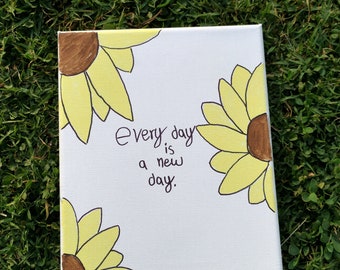 every day
is
a new
day.